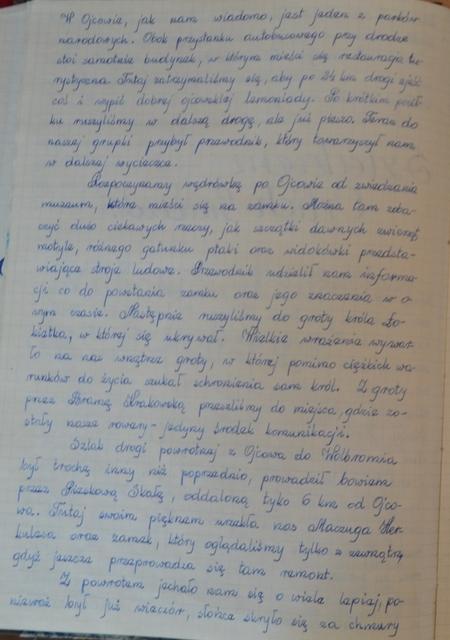 W Ojcowie, jak nam wiadomo, jest jeden z parków
narodowych. Obok przystanku autobusowego przy drodze
stoi samotnie budynek, w którym mieści się restauracja tu-
rystyczna. Tutaj zatrzymaliśmy się, aby po 24 km drogi zjeść
coś i wypić dobrej ojcowskiej lemoniady. Po krótkim posił-
ku ruszyliśmy w dalszą drogę, ale już pieszo. Teraz do
naszej grupki przybył przewodnik, który towarzyszył nam
w dalszej wycieczce.
Rozpoczynamy wędrówkę po Ojcowie od zwiedzania
muzeum, które mieści się na zamku. Można tam zoba-
czyć dużo ciekawych rzeczy, jak szczątki dawnych zwierząt
motyle, różnego gatunku ptaki oraz widokówki przedsta-
wiające stroje ludowe. Przewodnik udzielił nam informa-
cji co do powstania zamku oraz jego znaczenia w o-
wym czasie. Następnie ruszyliśmy do groty króla Ło-
kietka, w której się ukrywał. Wielkie wrażenie wywar-
ło na nas wnętrze groty, w której pomimo ciężkich wa-
runków do życia szukał schronienia sam król. Z groty
przez Bramę Krakowską przeszliśmy do miejsca, gdzie zo-
stały nasze rowery - jedyny środek komunikacji.
Szlak drogi powrotnej z Ojcowa do Wolbromia
był trochę inny niż poprzednio, prowadził bowiem
przez Pieskową Skałę, oddaloną tyko 6 km od Ojco-
wa. Tutaj swoim pięknem urzekła nas Maczuga Her-
kulesa oraz zamek, który oglądaliśmy tylko z zewnątrz,
gdyż jeszcze przeprowadza się tam remont.
Z powrotem jechało nam się o wiele lepiej, po-
nieważ był już wieczór, słońce skryło się za chmury